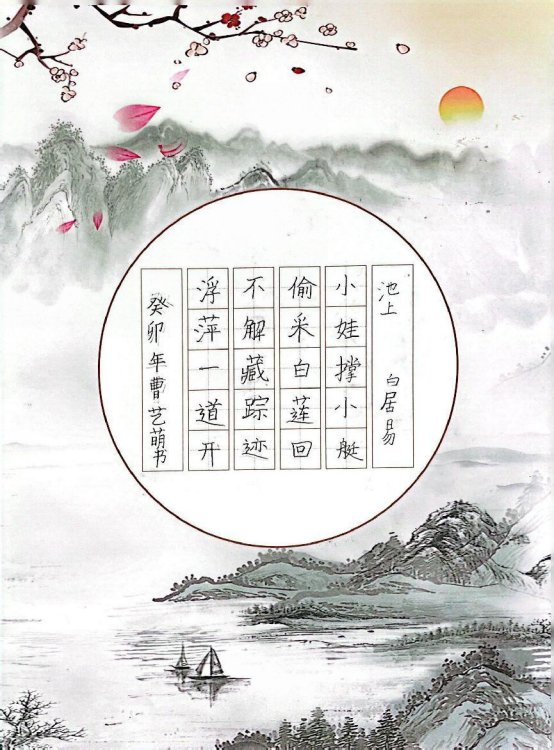 池上 白居易
小娃撑小艇
偷采白莲回
不解藏踪迹
浮萍一道开
癸卯年曹艺萌书